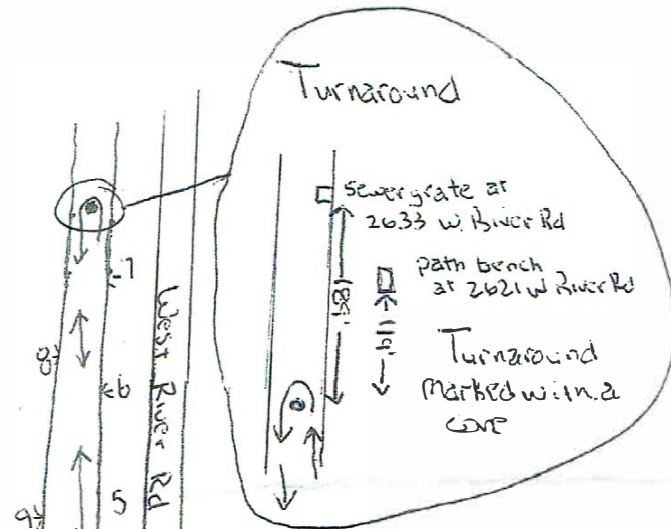 Turnaround
Sewer grate at
2633 W. River Rd
path bench
at 2621 W River Rd
Turnaround
Marked with a
cone
West River Rd
7
8
6
5
9